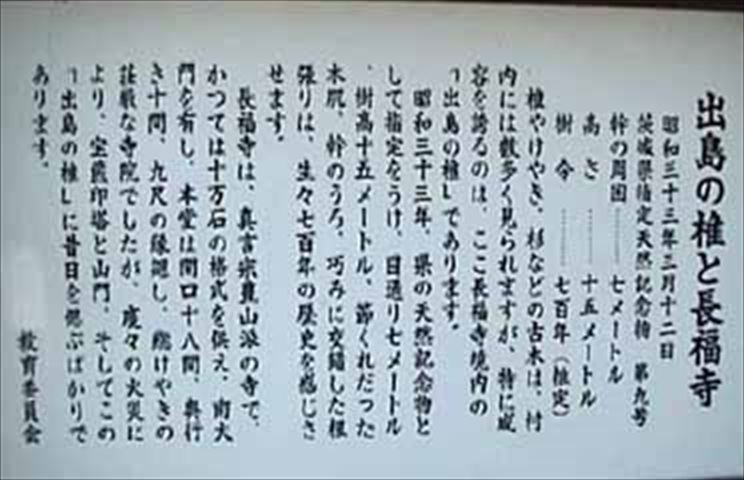 出島の椎と長福寺
昭和三十三年三月十二日
茨城県指定天然記念物 第九号
幹の周囲……七メートル
高さ……十五メートル
樹令……七百年(推定)
椎やけやき、杉などの古木は、村
内には数多く見られますが、特に威
容を誇るのは、ここ長福寺境内の
「出島の椎」であります。
昭和三十三年、県の天然記念物と
して指定をうけ、目通り七メートル
、樹高十五メートル、節くれだった
木肌、幹のうろ、巧みに交錯した根
張りは、生々七百年の歴史を感じさ
せます。
長福寺は、真言宗豊山派の寺で、
かつては十万石の格式を供え、南大
門を有し、本堂は間口十八間、奥行
き十間、九尺の縁廻し、総けやきの
荘厳な寺院でしたが、度々の火災に
より、宝篋印塔と山門、そしてこの
「出島の椎」に昔日を偲ぶばかりで
あります。
教育委員会